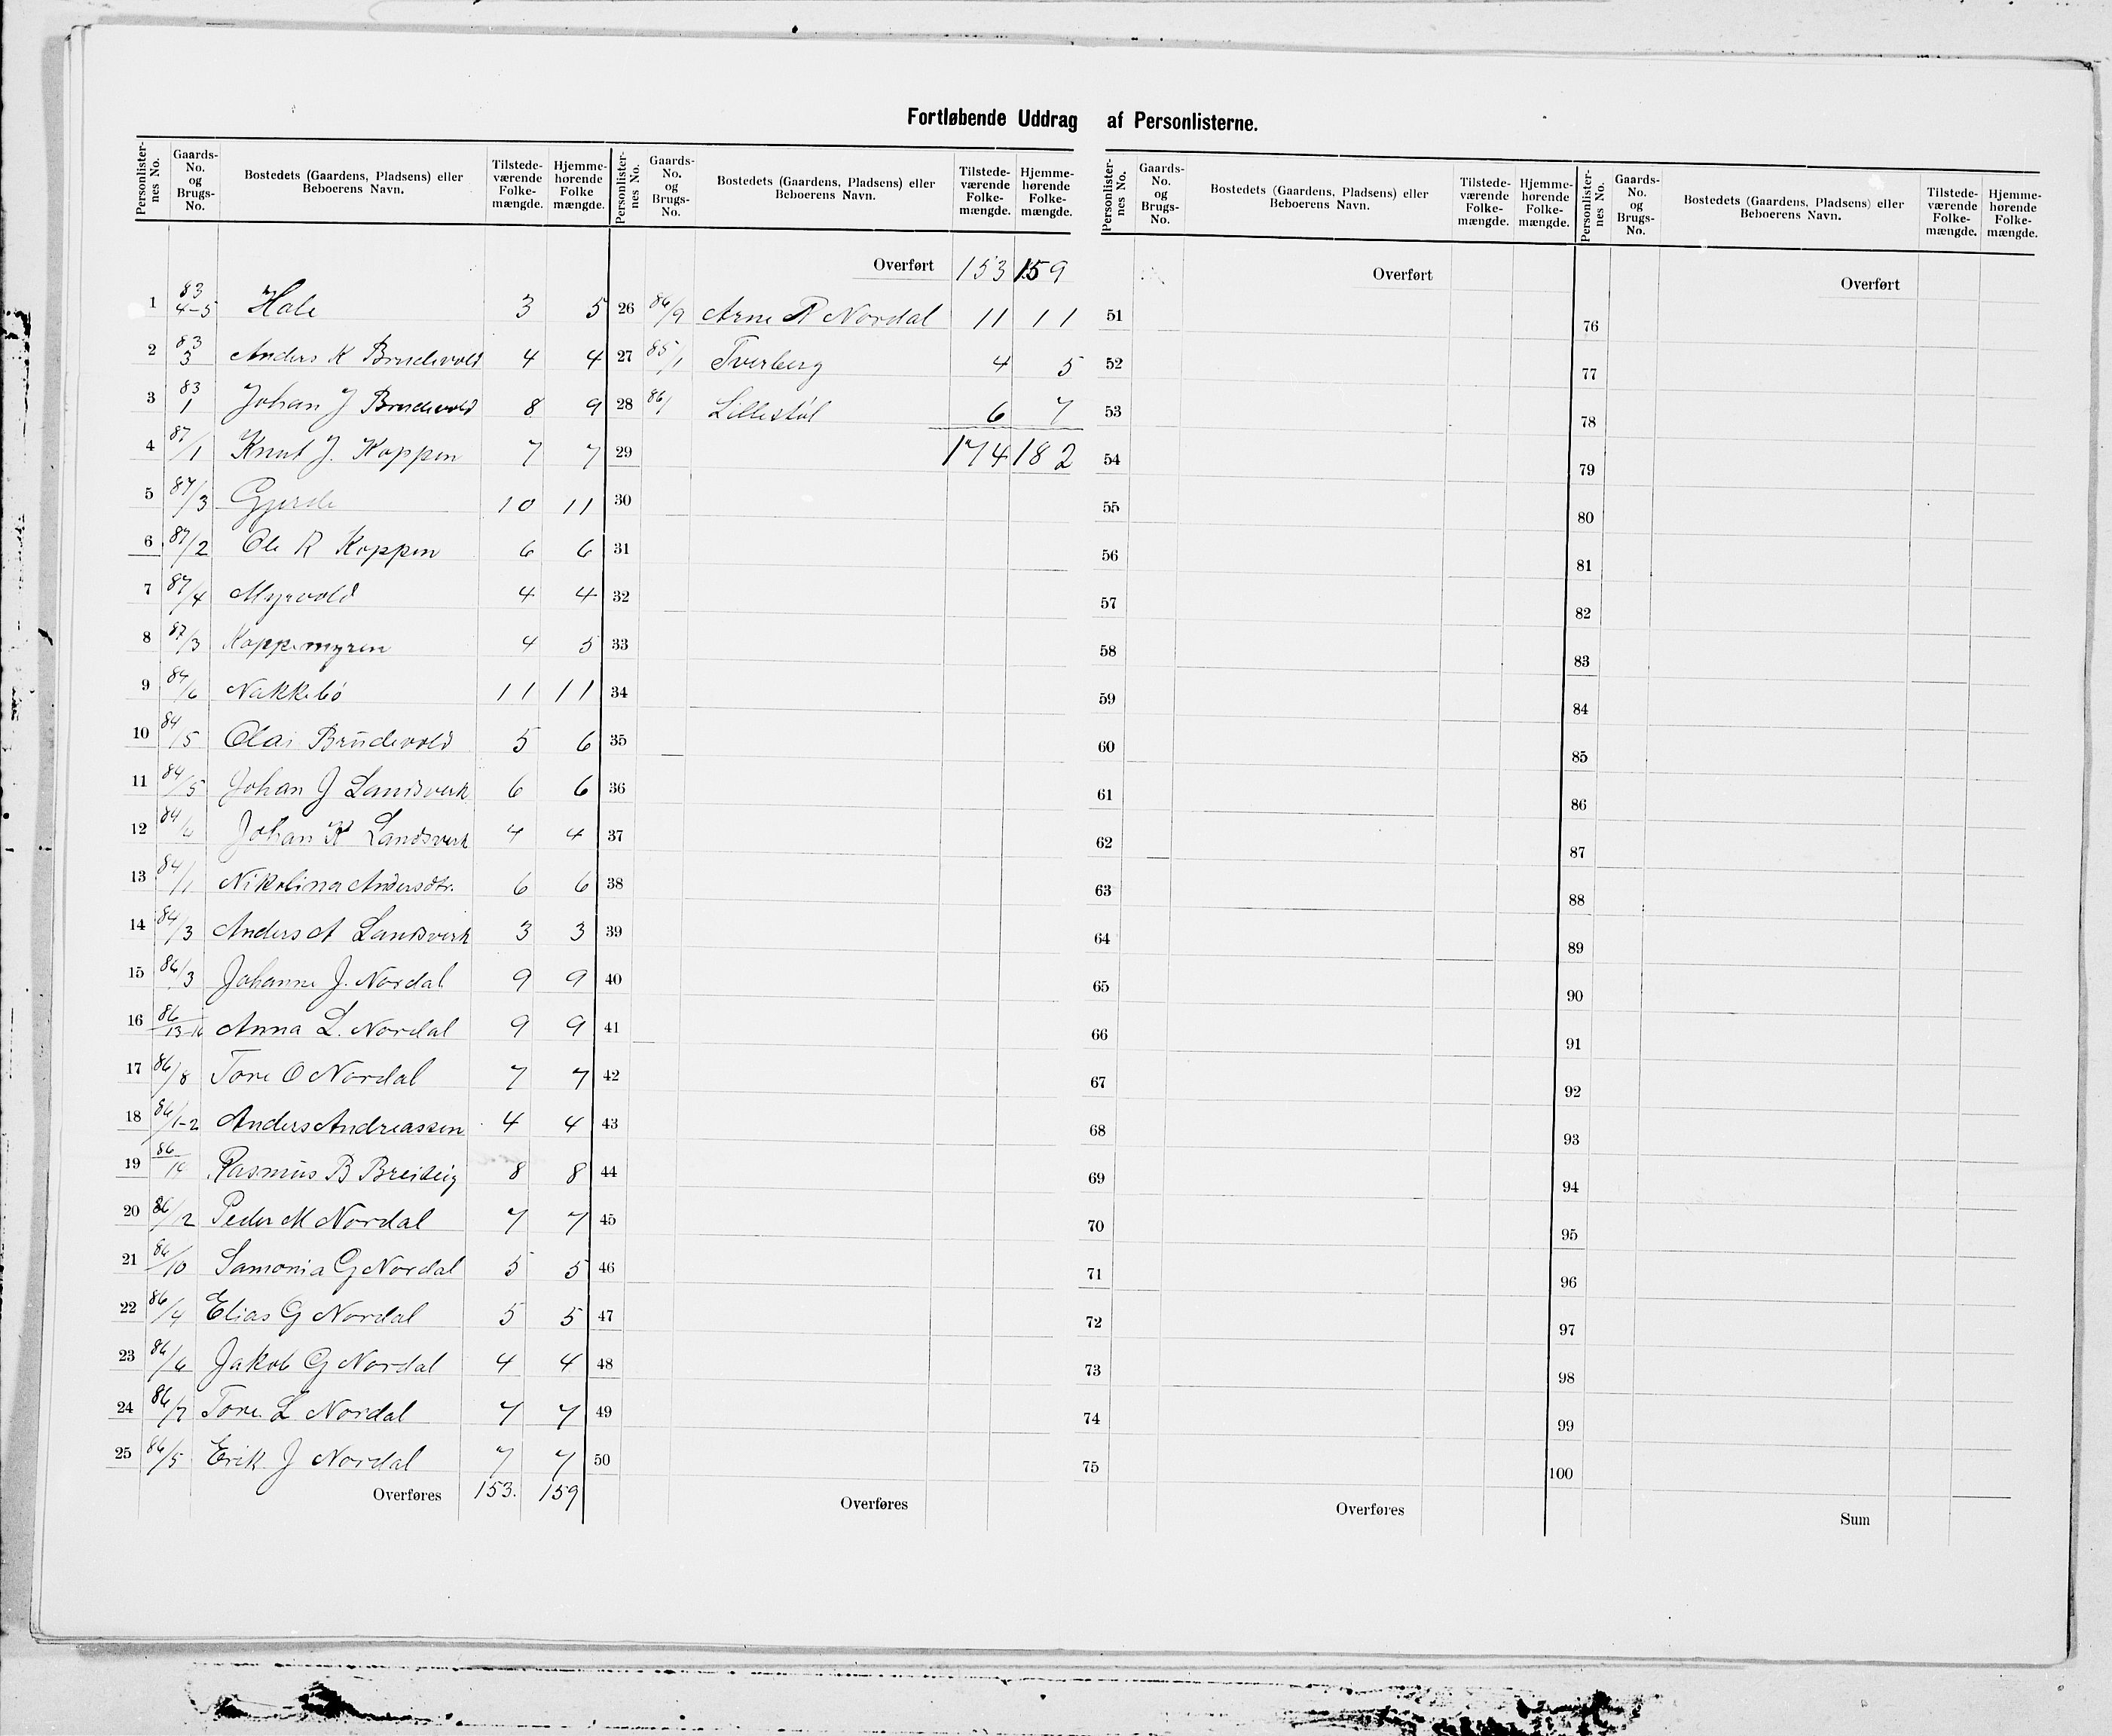 Fortløbende Uddrag af Personlisterne.
Personlister-nes No. Gaards-No. og Brugs-No. Bostedets (Gaardens, Pladsens) eller Beboerens Navn. Tilstede-værende Folke-mængde. Hjemme-hørende Folke mængde.
1 83 4-5 Hole 3 5
2 83 3 Anders K Brudevold 4 4
3 83 1 Johan J Brudevold 8 9
4 87/1 Knut J. Koppen 7 7
5 87/3 Gjerde 10 11
6 87/2 Ole R Koppen 6 6
7 87/4 Myrvold 4 4
8 87/3 Koppemyren 4 5
9 84/6 Nakkebö 11 11
10 84/5 Olai Brudevold 5 6
11 84/5 Johan J Landsverk 6 6
12 84/4 Johan K Landsverk 4 4
13 84/1 Nikolina Andersdtr. 6 6
14 84/3 Anders A Landsverk 3 3
15 86/3 Johanne J. Nordal 9 9
16 86 13-16 Anna L. Nordal 9 9
17 86/8 Tore O Nordal 7 7
18 86/1-2 Anders Andreassen 4 4
19 86 Rasmus B Breiteig 8 8
20 86/12 Peder M Nordal 7 7
21 86/10 Samonia G Nordal 5 5
22 86/4 Elias G Nordal 5 5
23 86/6 Jakob G Nordal 4 4
24 86/7 Tore L Nordal 7 7
25 86/5 Erik J Nordal 7 7
Overføres 153. 159
Personlister-nes No. Gaards-No. og Brugs-No. Bostedets (Gaardens, Pladsens) eller Beboerens Navn. Tilstede-værende Folke-mængde. Hjemme-hørende Folke-mængde.
Overført 153 159
26 86/9 Arne R Nordal 11 11
27 85/1 Tverberg 4 5
28 86/ Lillestöl 6 7
29 174 182
30
31
32
33
34
35
36
37
38
39
40
41
42
43
44
45
46
47
48
49
50
Overføres
Personlister-nes No. Gaards-No. og Brugs-No. Bostedets (Gaardens, Pladsens) eller Beboerens Navn. Tilstede-værende Folke-mængde. Hjemme-hørende Folke-mængde.
Overført
51
52
53
54
55
56
57
58
59
60
61
62
63
64
65
66
67
68
69
70
71
72
73
74
75
Overføres
Personlister-nes No. Gaards-No. og Brugs-No. Bostedets (Gaardens, Pladsens) eller Beboerens Navn. Tilstede-værende Folke-mængde. Hjemme-hørende Folke-mængde.
Overført
76
77
78
79
80
81
82
83
84
85
86
87
88
89
90
91
92
93
94
95
96
97
98
99
100
Sum